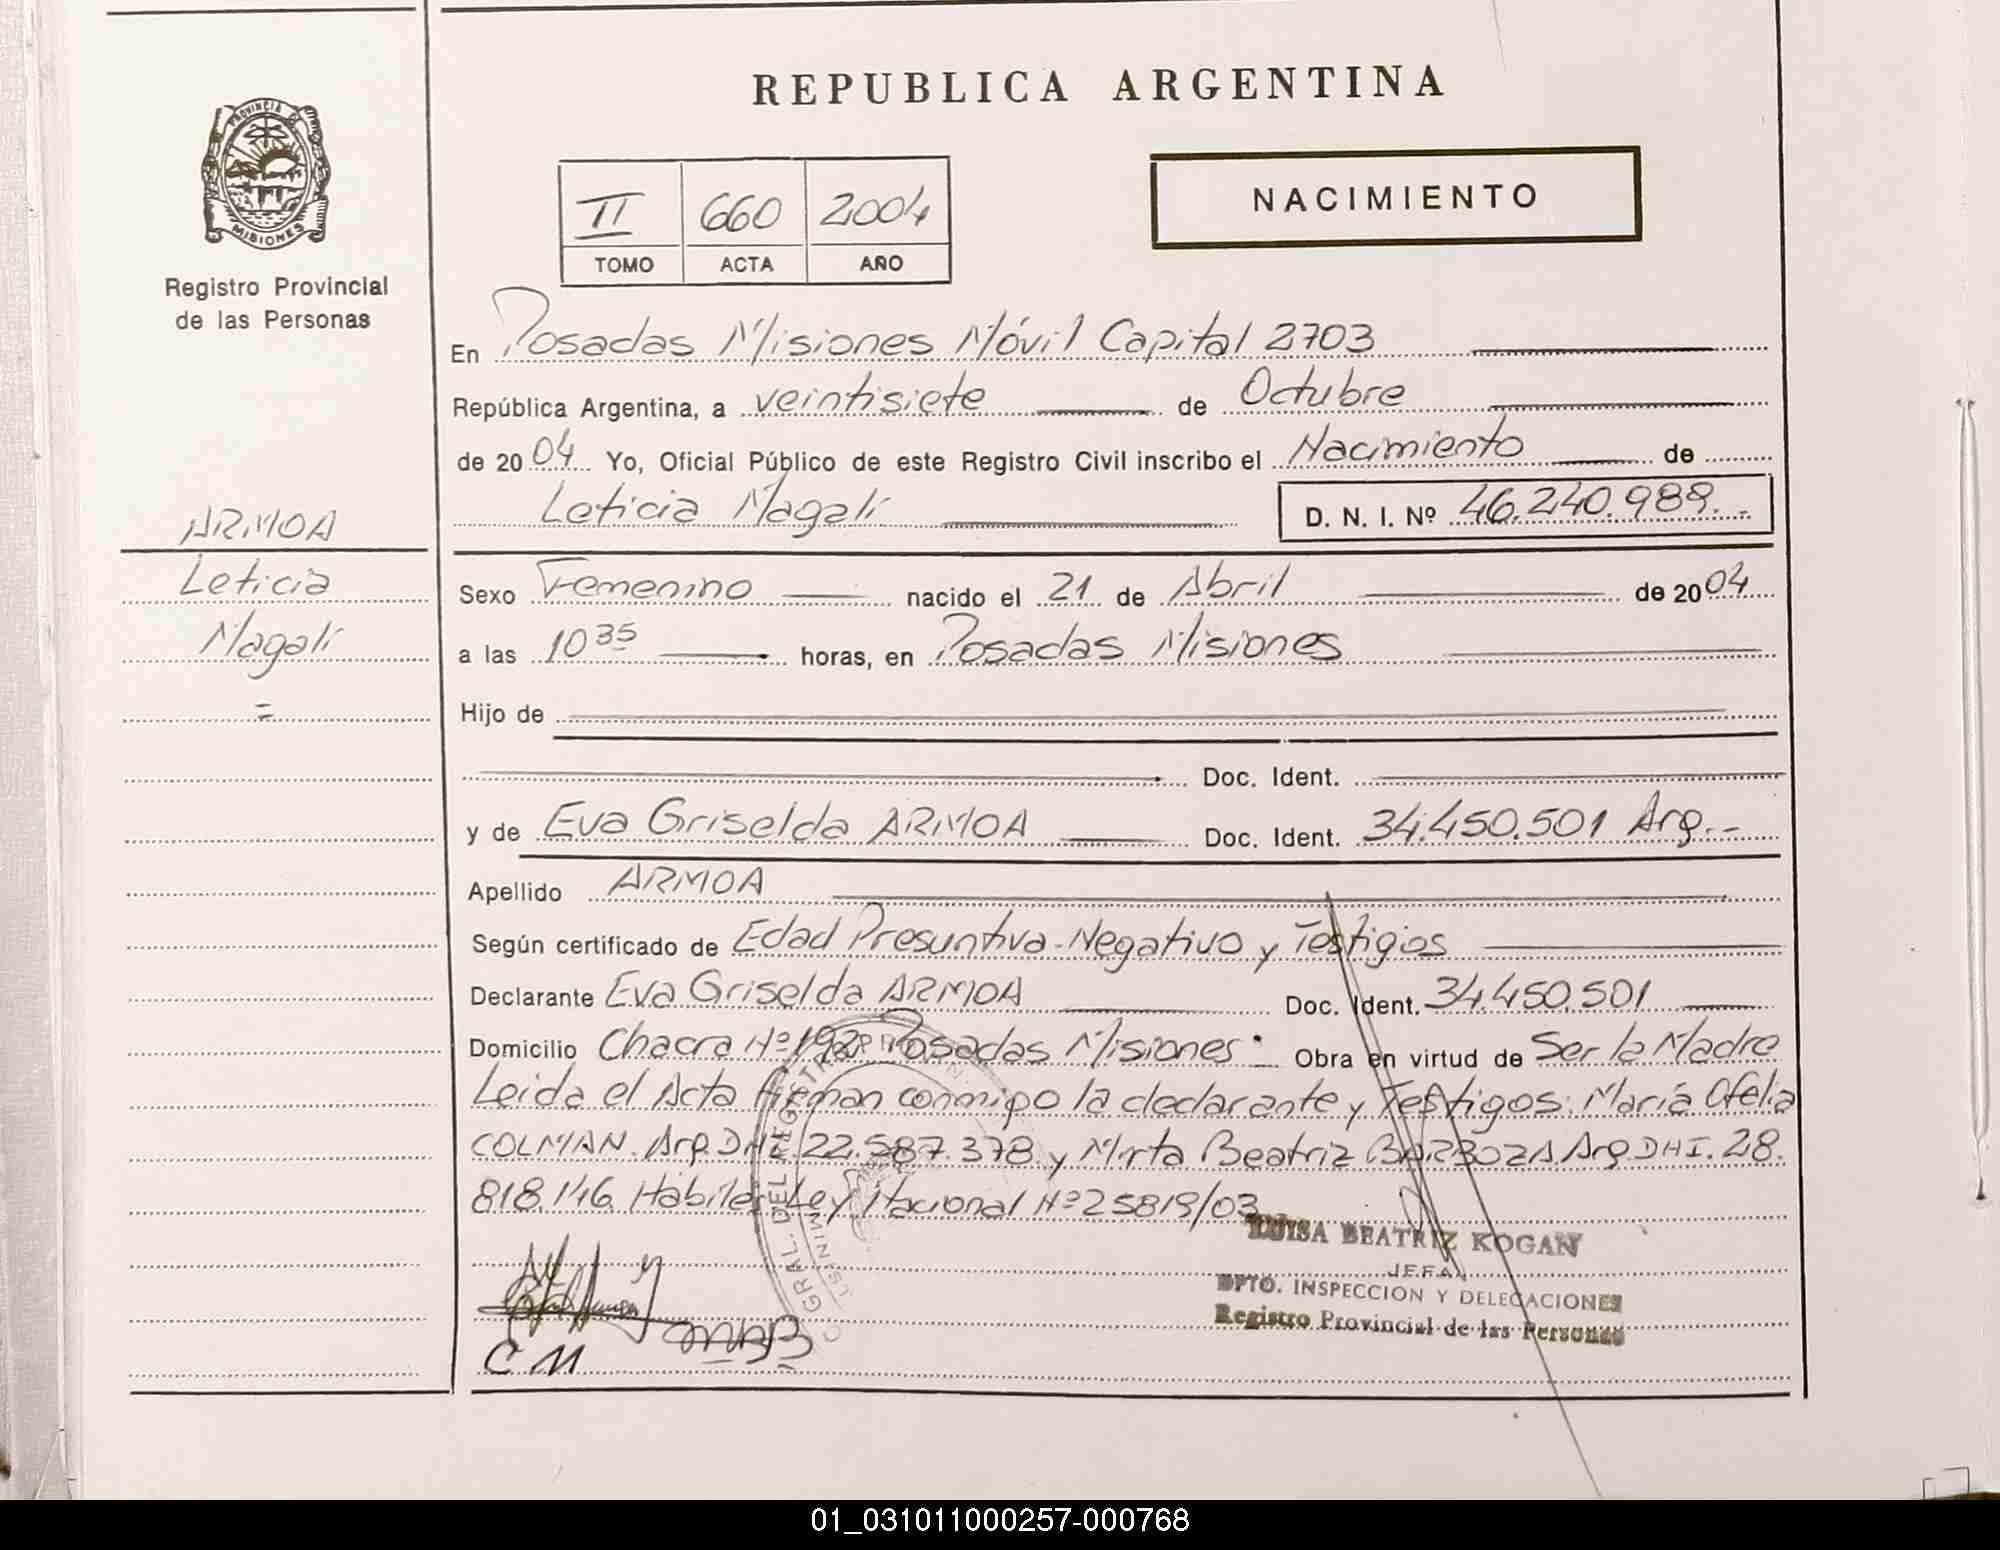 REPUBLICA ARGENTINA
PROVINCIA DE
MISIONES
Registro Provincial
de las Personas
NACIMIENTO
II 660 2004
TOMO ACTA AÑO
En Posadas Misiones Móvil Capital 2703
República Argentina, a veintisiete de Octubre
de 2004 Yo, Oficial Público de este Registro Civil inscribo el Nacimiento de
Leticia Magalí D. N. I. Nº 46.240.989.-
ARMOA
Leticia
Magalí
=
Sexo Femenino nacido el 21 de Abril de 2004
a las 10 35 horas, en Posadas Misiones
Hijo de
Doc. Ident.
y de Eva Griselda ARMOA Doc. Ident. 34.450.501 Arg.-
Apellido ARMOA
Según certificado de Edad Presuntiva-Negativo y Testigios
Declarante Eva Griselda ARMOA Doc. Ident. 34.450.501
Domicilio Chacra Nº 192 Posadas Misiones Obra en virtud de Ser la Madre
Leida el Acta firman conmigo la declarante y Testigos: María Ofelia
COLMAN. Arg. DNI. 22.587.378 y Mirta Beatriz BARBOZA. Arg. DNI. 28.
818.146. Habiles Ley Nacional Nº 25819/03
LUISA BEATRIZ KOGAN
JEFA
DPTO. INSPECCION Y DELEGACIONES
Registro Provincial de las Personas
GRAL. DEL REGISTR
MINIST
MBB
CM
01_031011000257-000768